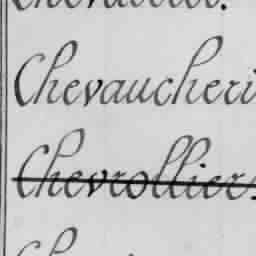 Chevaucheri
Chevrollier.